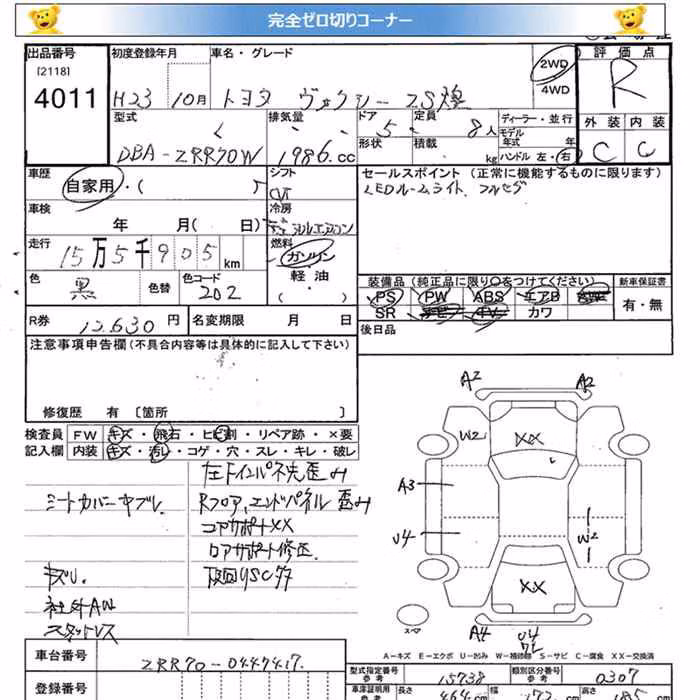 完全ゼロ切りコーナー
出品番号 初度登録年月 車名・グレード 2WD 4WD 評価点
[2118]
4011 H23 10月 トヨタ ヴォクシー ZS煌 R
型式 排気量 ドア 定員 ディーラー・並行 外装 内装
DBA-ZRR70W 1986.cc 5 8人 モデル年式 年 C C
形状 積載 kg ハンドル 左・右
車歴 シフト セールスポイント (正常に機能するものに限ります)
自家用・( ) CVT LEDルームライト、フルセグ
車検 冷房
年 月( 日) デュアルエアコン
走行 15万5千905km 燃料
ガソリン
色 黒 色替 色コード 202 軽・油
( )
装備品(純正品に限り○をつけてください) 新車保証書
PS PW ABS エアB 有・無
SR ナビ TV カワ
R券 12,630円 名変期限 月 日 後日品
注意事項申告欄(不具合内容等は具体的に記入して下さい)
修復歴 有 〔箇所 〕
検査員 FW キズ・飛石・ヒビ割・リペア跡・×要
記入欄 内装 キズ・汚レ・コゲ・穴・スレ・キレ・破レ
左Fインパネ先歪み
シートカバーヤブレ Rフロア、エンドパネル 歪み
コアサポートXX
ロアサポート修正
キズU. 下回りSCサ
社外AW
スタットレス
A2 A2
W2 XX
A3
U4 W2
XX
スペア A4 U4
A-キズ E-エクボ U-凹み W-補修跡 S-サビ C-腐食 XX-交換済
車台番号 ZRR70-0447417. 型式指定番号 参考 15738 類別区分番号 参考 0307
登録番号 車庫証明用 参考 長さ 464cm 幅 172cm 高さ 185cm